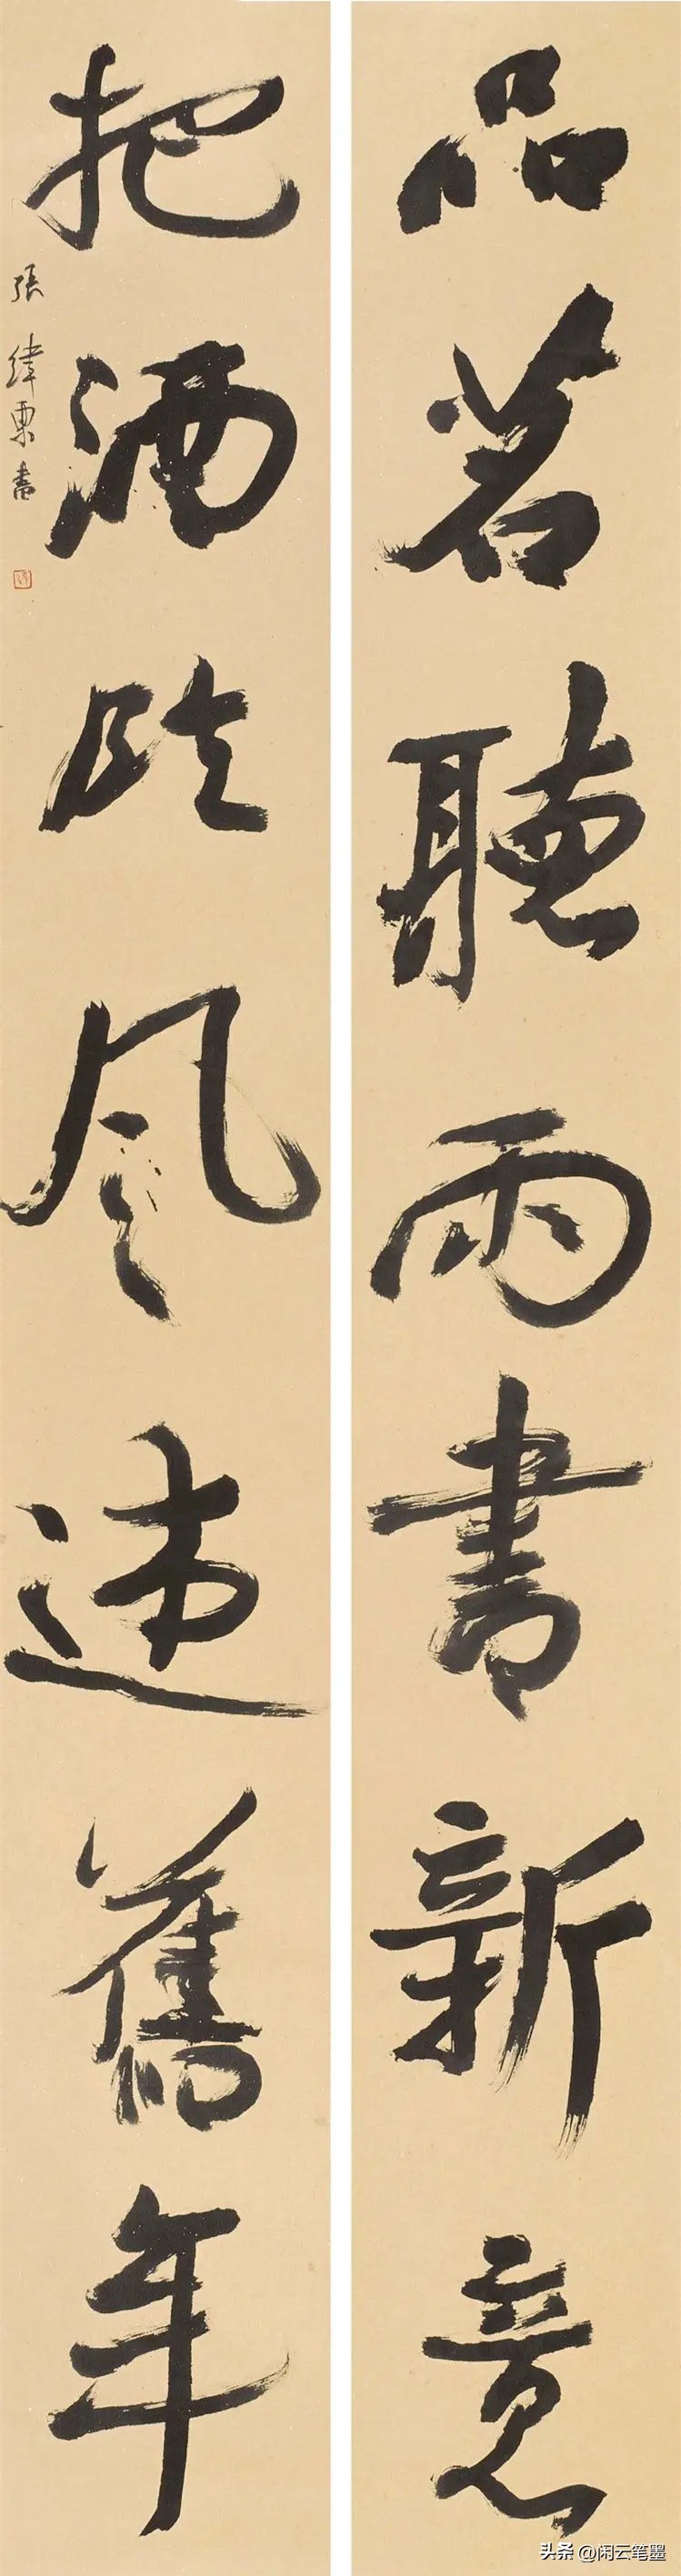 品茗聽雨書新意
把酒臨風述舊年
張緯書
头条 @闲云笔墨